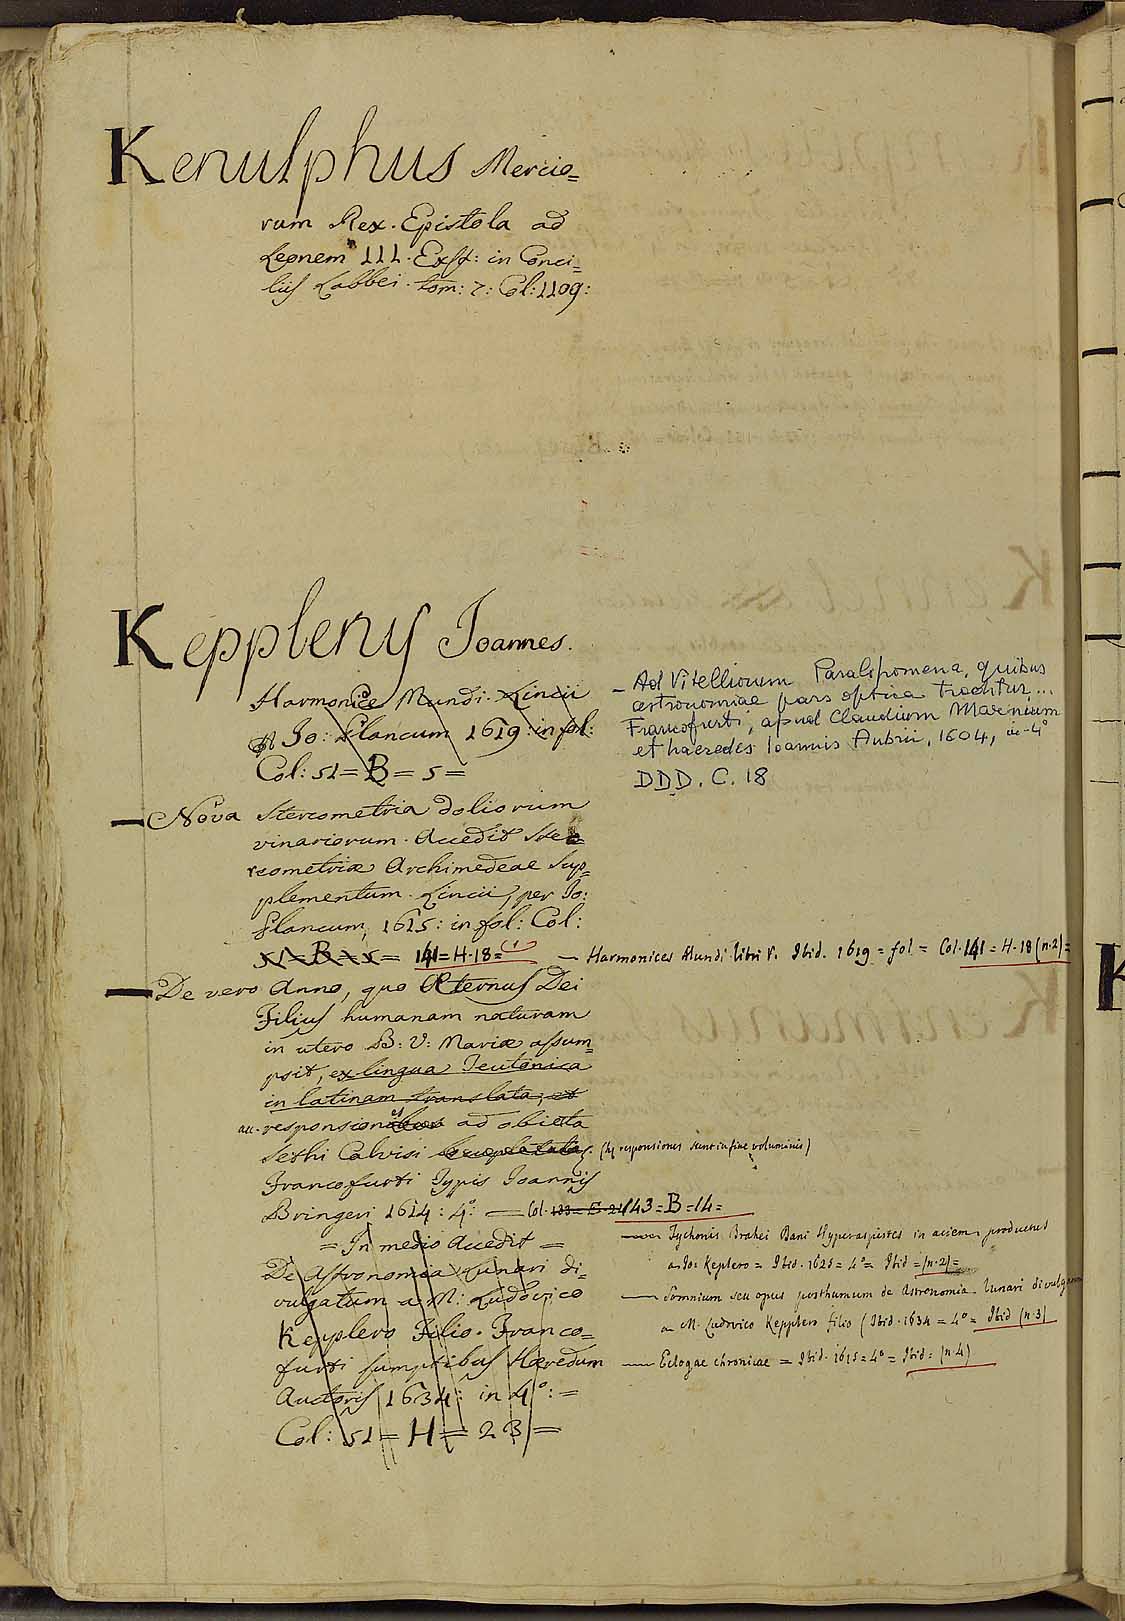 Kenulphus Mercio=
rum Rex. Epistola ad
Leonem III. Exst: in Conci=
lijs Labbei. tom: 7: Col: 1109:
Kepplerus Joannes.
Harmonice Mundi. Lincii
Jo: Plancum 1619: in fol:
Col: 51= B = 5 =
Nova Stereometria doliorum
vinariorum. Accedit Ste=
reometriæ Archimedeae Sup=
plementum. Lincii, per Jo:
Plancum, 1615: in fol: Col:
51= B = 5 = 141=H.18=
De vero Anno, quo Æternus Dei
Filius humanam naturam
in utero B: V: Mariæ assum=
psit, ex lingua Teutonica
in latinam translata, et
responsiones ad obiecta
Sethi Calvisi locupletata. (hæ responsiones sunt in fine voluminis)
Francofurti Typis Joannis
Bringeri 1614: 4°: = Col. 143=B=14=
= In medio Accedit =
De Astronomia Lunari di=
vulgatum a M: Ludovico
Kepplero Filio. Franco=
furti sumptibus Hæredum
Auctoris 1634: in 4°: =
Col: 51= H = 23 =
– Ad Vitellionem Paralipomena, quibus
astronomiae pars optica traditur...
Francofurti, apud Claudium Marnium
et haeredes Ioannis Aubrii, 1604, in-4°
DDD. C. 18
— Harmonices Mundi libri V. Ibid. 1619 = fol = Col. 141 = H. 18 (n. 2) =
— Tychonis Brahei Dani Hyperaspistes in aciem productus
a Jo: Keplero = Ibid. 1625 = 4° = Ibid = (n. 2) =
— Somnium seu opus posthumum de Astronomia Lunari
a M. Ludovico Kepplero filio (Ibid. 1634 = 4° = Ibid (n. 3)
— Eclogae chronicae = Ibid. 1615 = 4° = Ibid = (n. 4)